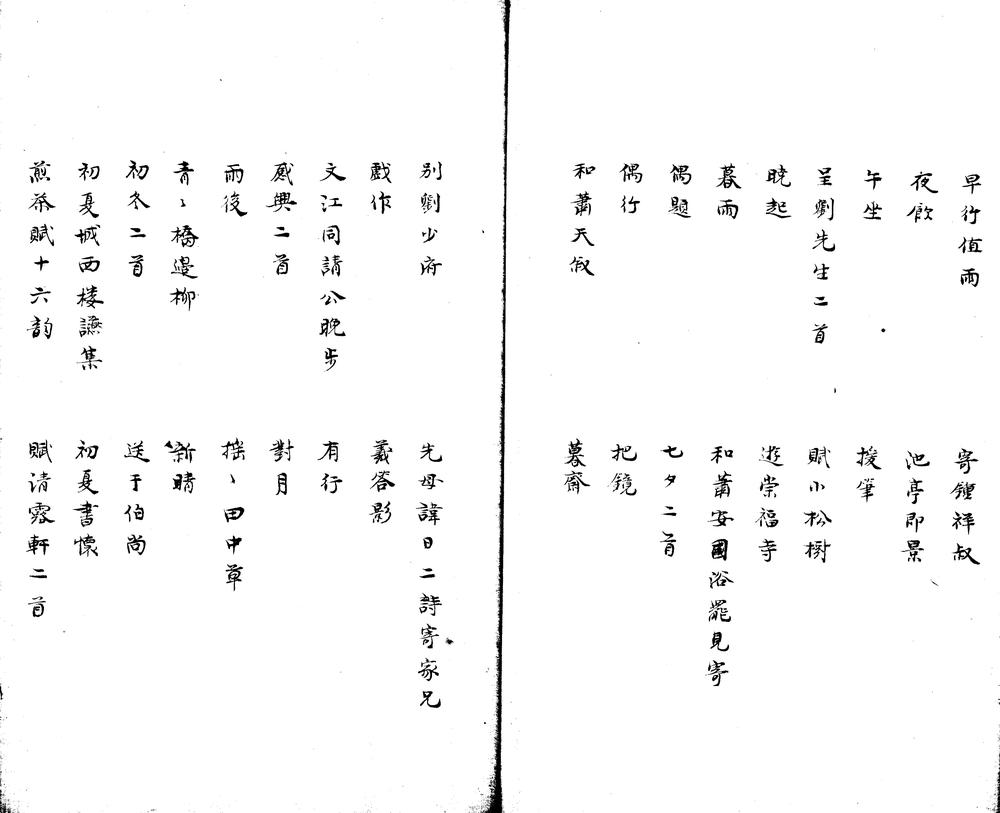 早行值雨
寄鍾祥叔
夜飲
池亭即景
午坐
援筆
呈劉先生二首
賦小松樹
晓起
遊崇福寺
暮雨
和蕭安國浴罷見寄
偶題
七夕二首
偶行
把鏡
和蕭天叙
暮齋
别劉少府
先母諱日二詩寄家兄
戲作
義答影
文江同請公晚步
有行
感興二首
對月
雨後
摇〻田中草
青〻橋邉柳
新晴
初冬二首
送于伯尚
初夏城西楼讌集
初夏書懷
煎茶賦十六韵
賦清露軒二首